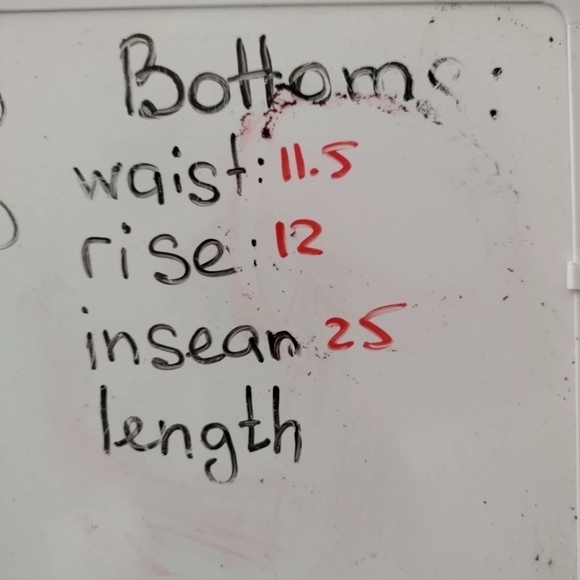 Bottoms:
waist: 11.5
rise: 12
insean 25
length